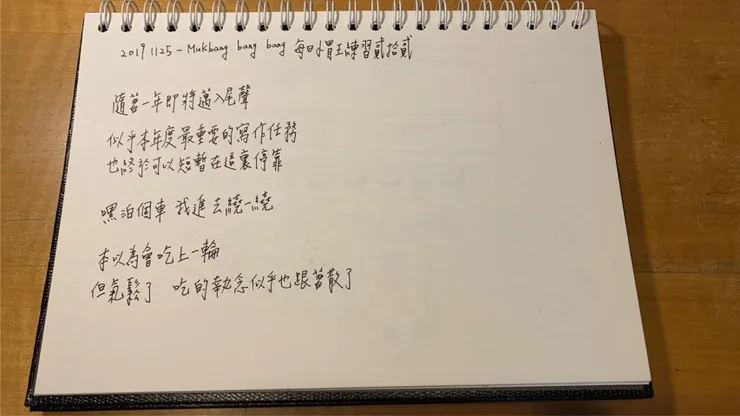 20191125 - Mukbang bang bang 每日胃王練習貳拾貳
隨著一年即將邁入尾聲
似乎本年度最重要的寫作任務
也終於可以短暫在這裏停靠
嘿泊個車 我進去繞一繞
本以為會吃上一輪
但氣鬆了 吃的執念似乎也跟著散了